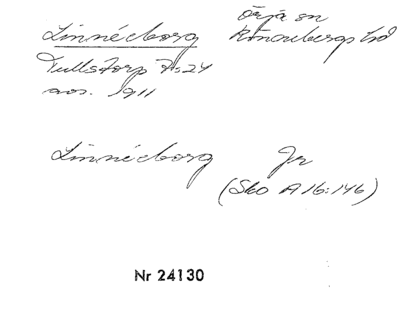 Linnéborg örja sn
Rönnebergs hd
Tullstorp 7:24
avs. 1911
Linnéborg Jr
(Sko A 16:146)
Nr 24130